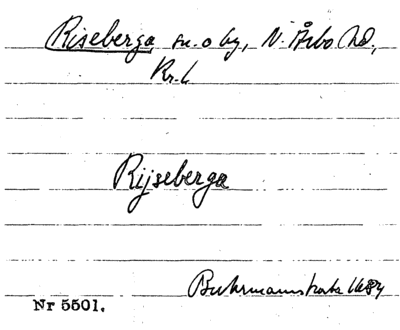 Riseberga sn. o by, N. Åsbo hd,
Kr. l.
Rijseberga
Buhrmanns karta 1684
Nr 5501.